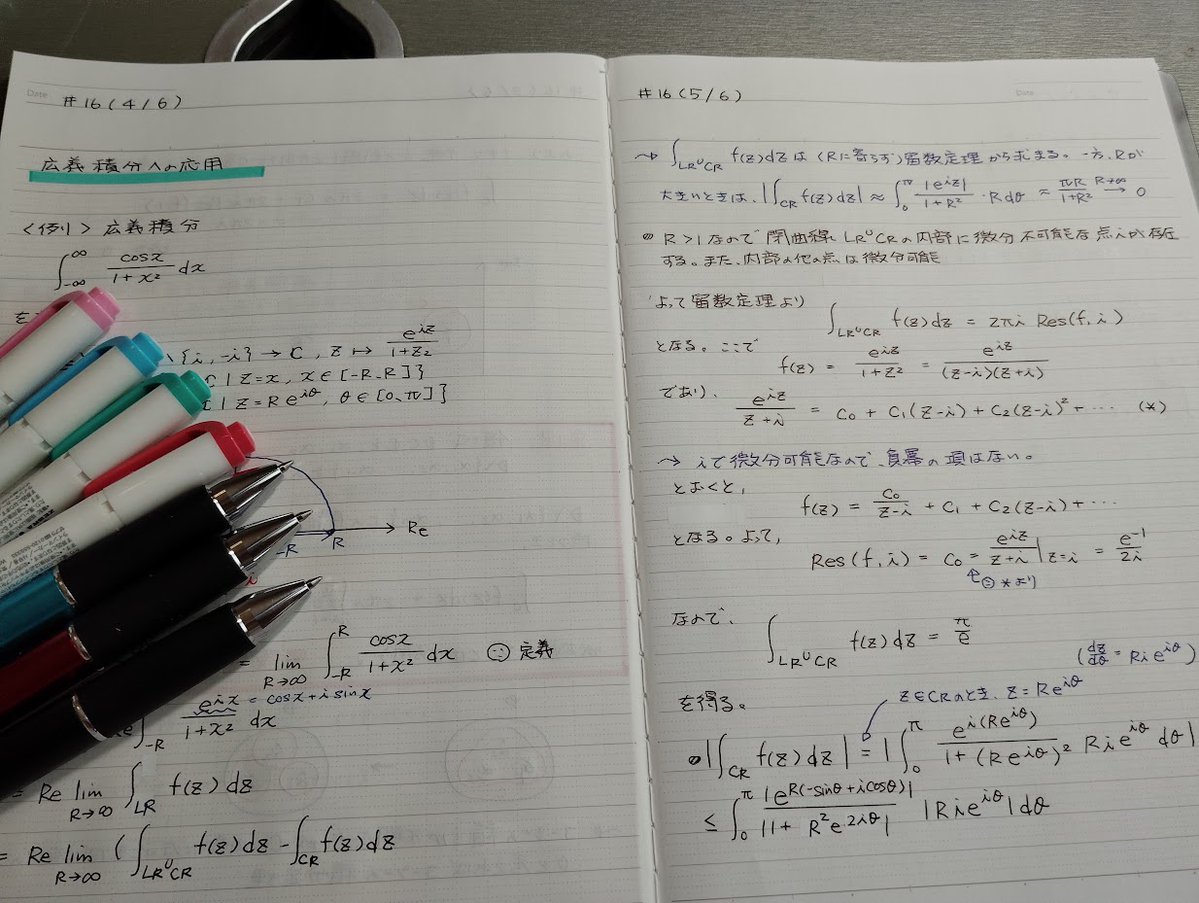 Date
#16(4/6)
広義積分への応用
<例> 広義積分
∫_{-∞}^{∞} cosx/(1+x²) dx
を
\{i, -i} → C, z ↦ e^{iz}/(1+z²)
C | z=x, x∈[-R,R]}
| z=Re^{iθ}, θ∈[0,π]}
-R R Re
= lim_{R→∞} ∫_{-R}^{R} cosx/(1+x²) dx ∵ 定義
e^{ix} = cosx+i sinx
Re ∫_{-R} e^{ix}/(1+x²) dx
= Re lim_{R→∞} ∫_{LR} f(z)dz
= Re lim_{R→∞} ( ∫_{LR∪CR} f(z)dz - ∫_{CR} f(z)dz
#16(5/6)
Date
⇝ ∫_{LR∪CR} f(z)dz は (Rに寄らず)留数定理から求まる。一方、Rが
大きいときは、|∫_{CR} f(z)dz| ≈ ∫_0^π |e^{iz}|/(1+R²) ・Rdθ ≈ πR/(1+R²) →^{R→∞} 0
R>1なので 閉曲線 LR∪CRの内部に微分不可能な点iが存在
する。また、内部の他の点は微分可能
よって留数定理より
∫_{LR∪CR} f(z)dz = 2πi Res(f,i)
となる。ここで
f(z) = e^{iz}/(1+z²) = e^{iz}/((z-i)(z+i))
であり、
e^{iz}/(z+i) = C₀ + C₁(z-i) + C₂(z-i)² + ⋯ (*)
→ iで微分可能なので、負冪の項はない。
とおくと、
f(z) = C₀/(z-i) + C₁ + C₂(z-i) + ⋯
となる。よって、
Res(f,i) = C₀ = e^{iz}/(z+i) |_{z=i} = e^{-1}/2i
∵ *より
なので、
∫_{LR∪CR} f(z)dz = π/e
(dz/dθ = Rie^{iθ})
を得る。
z∈CRのとき、z=Re^{iθ}
|∫_{CR} f(z)dz| = |∫_0^π e^{i(Re^{iθ})}/(1+(Re^{iθ})²) Rie^{iθ} dθ|
≤ ∫_0^π |e^{R(-sinθ+icosθ)}|/|1+R²e^{2iθ}| |Rie^{iθ}|dθ